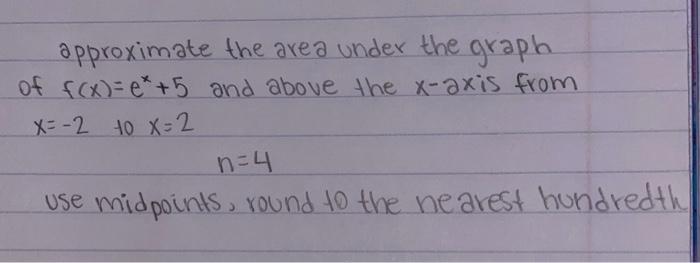 approximate the area under the graph
of f(x)=eˣ+5 and above the x-axis from
x=-2 to x=2
n=4
use midpoints, round to the nearest hundredth